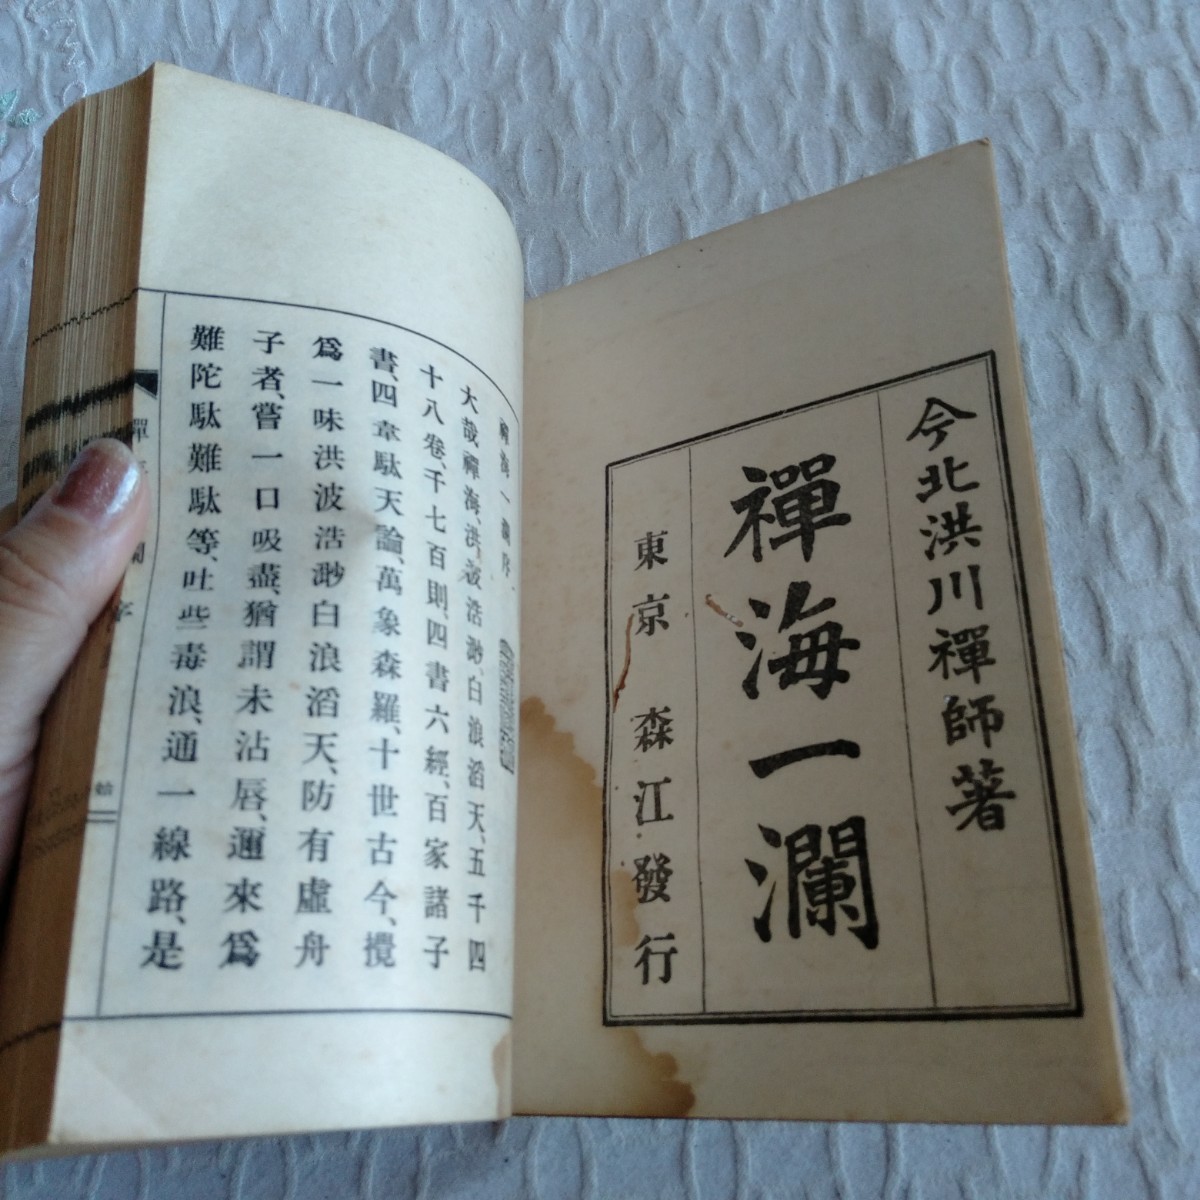 今北洪川禪師著
禪海一瀾
東京 森江發行
禪海一瀾序
大哉禪海、洪波浩渺、白浪滔天、五千四
十八卷、千七百則、四書六經、百家諸子
書、四韋馱天論、萬象森羅、十世古今、攪
爲一味洪波浩渺白浪滔天、防有虛舟
子者、嘗一口吸盡、猶謂未沾唇、邇來爲
難陀馱難馱等、吐些毒浪、通一線路、是